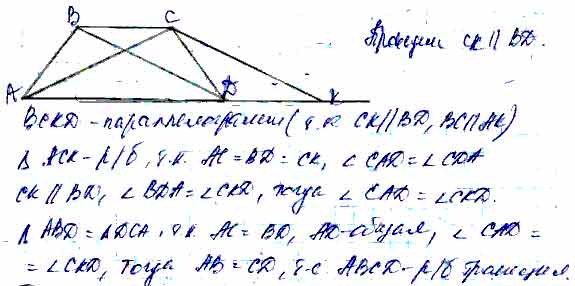 B C Проведем CK || BD.
A D K
BCKD - параллелограмм (т.к. CK || BD, BC || AK)
Δ ACK - р/б, т.к. AC = BD = CK, ∠ CAD = ∠ CDA
CK || BD, ∠ BDA = ∠ CKD, тогда ∠ CAD = ∠ CKD.
Δ ABD = Δ DCA, т.к. AC = BD, AD - общая, ∠ CAD =
= ∠ CKD, тогда AB = CD, т.е. ABCD - р/б трапеция.